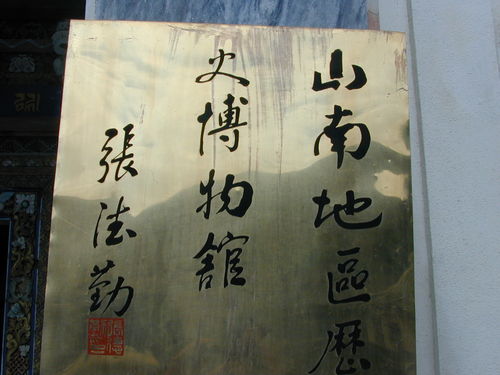 山南地區歷
史博物館
張德勤